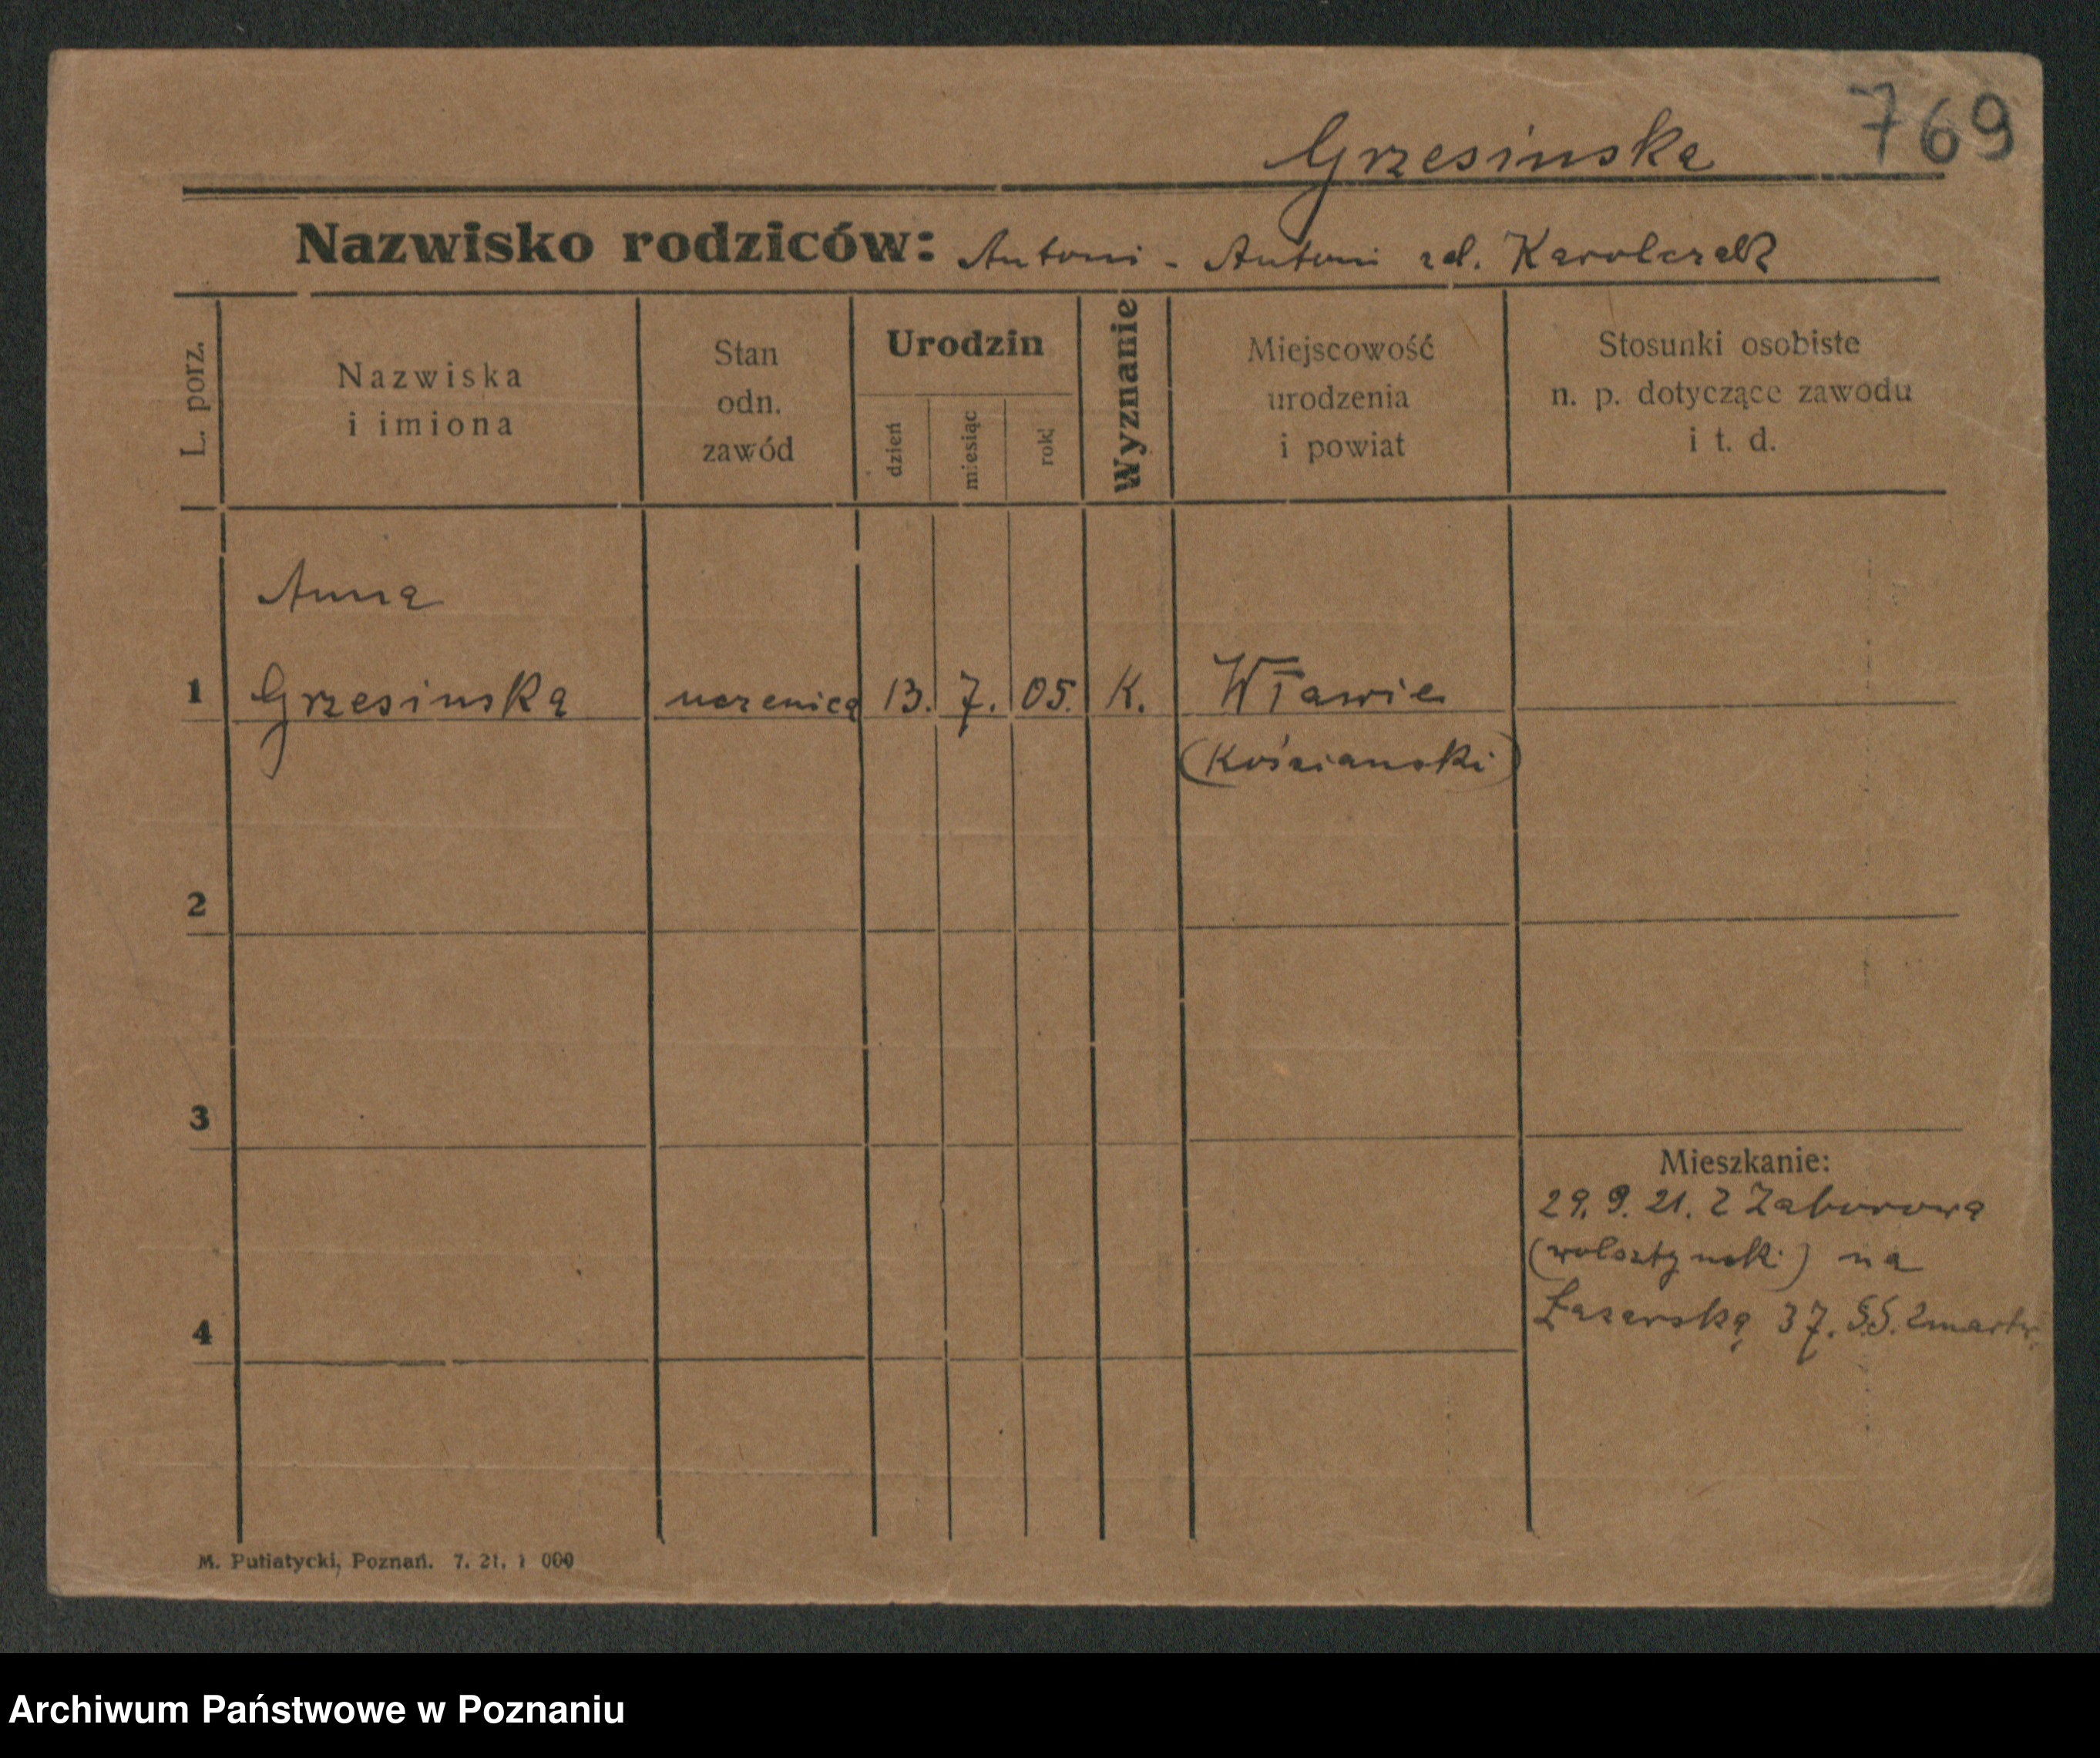 769
Grzesinska
Nazwisko rodziców: Antoni - Antoni zd. Karolczak
L. porz.
Nazwiska
i imiona
Stan
odn.
zawód
Urodzin
dzień
miesiąc
rok
Wyznanie
Miejscowość
urodzenia
i powiat
Stosunki osobiste
n. p. dotyczące zawodu
i t. d.
Anna
1 Grzesinska uczenica 13. 7. 05. K. Wławie
(Kościanski)
2
3
Mieszkanie:
29. 9. 21. z Zaborowa
(wolsztynski) na
4 Łazarską 37. S.S. Zmartw.
M. Putiatycki, Poznań. 7. 21. 1 000
Archiwum Państwowe w Poznaniu